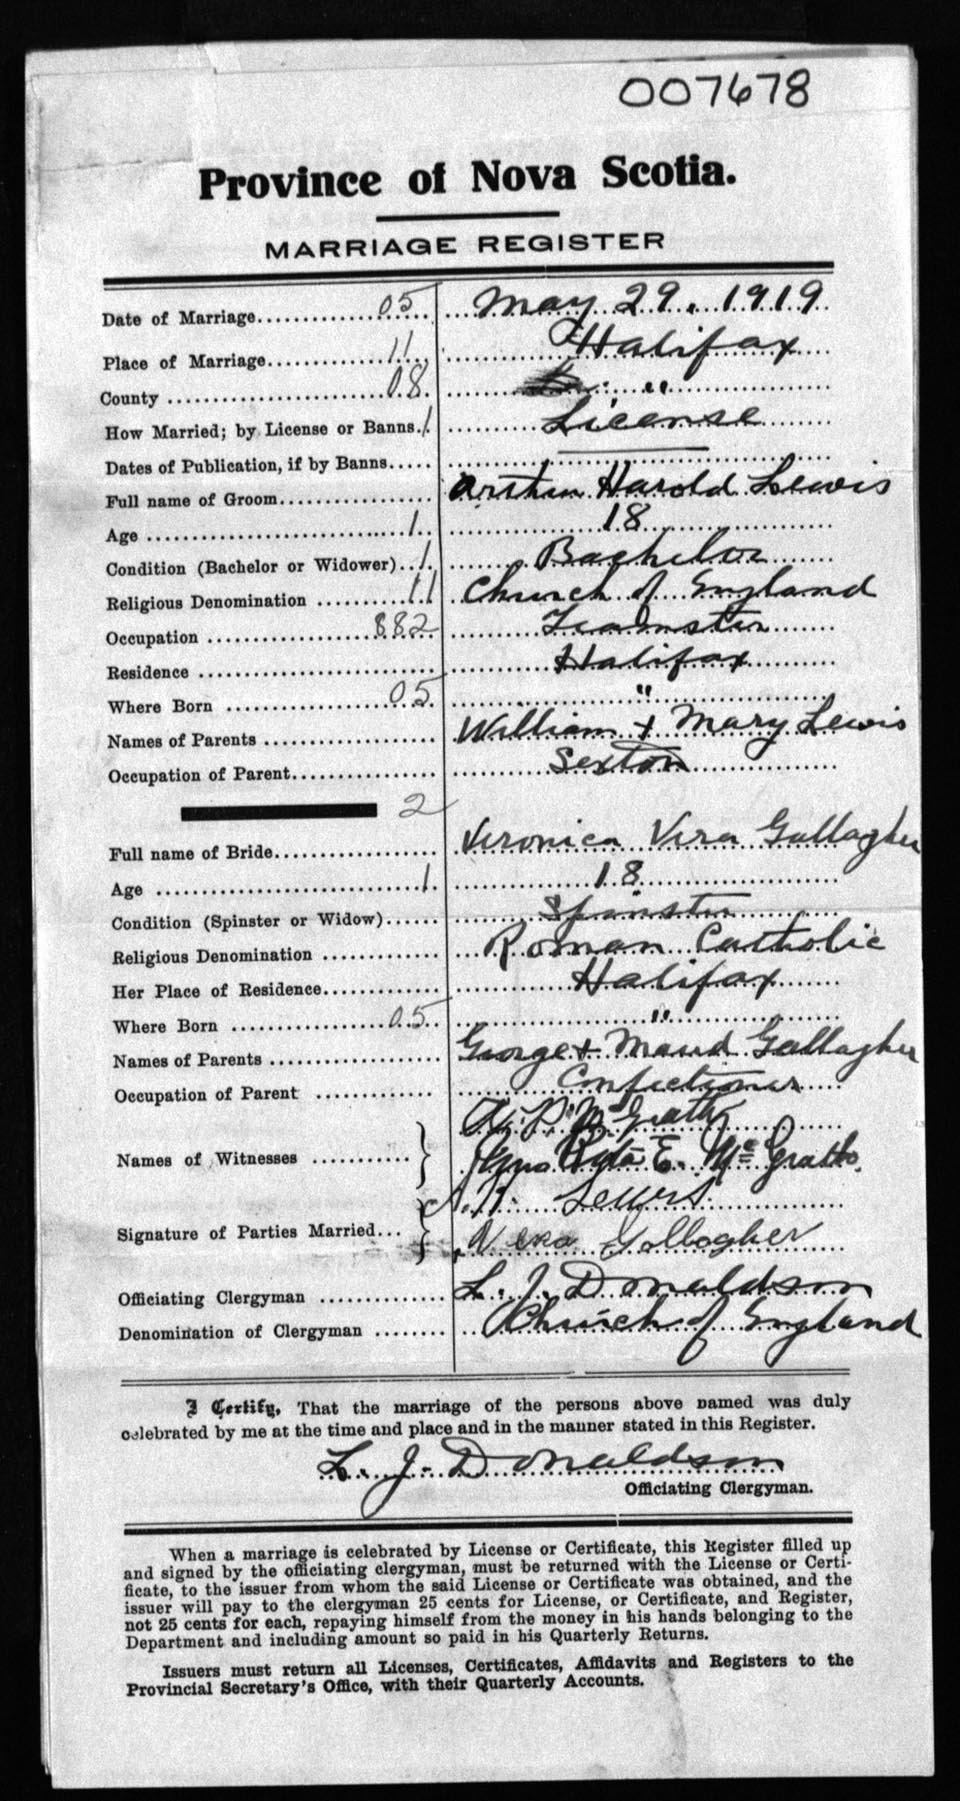 007678
Province of Nova Scotia.
MARRIAGE REGISTER
Date of Marriage 05 May 29, 1919
Place of Marriage 11 Halifax
County 08 "
How Married; by License or Banns 1 License
Dates of Publication, if by Banns
Full name of Groom Arthur Harold Lewis
Age 1 18
Condition (Bachelor or Widower) 1 Bachelor
Religious Denomination 11 Church of England
Occupation 882 Teamster
Residence Halifax
Where Born 05 "
Names of Parents William + Mary Lewis
Occupation of Parent Sexton
2
Full name of Bride Veronica Vera Gallagher
Age 1 18
Condition (Spinster or Widow) Spinster
Religious Denomination Roman Catholic
Her Place of Residence Halifax
Where Born 05 "
Names of Parents George + Maud Gallagher
Occupation of Parent Confectioner
P. McGrath
Names of Witnesses E. McGrath
Lewis
Signature of Parties Married Vera Gallagher
Officiating Clergyman L. J. Donaldson
Denomination of Clergyman Church of England
I Certify, That the marriage of the persons above named was duly
celebrated by me at the time and place and in the manner stated in this Register.
L. J. Donaldson
Officiating Clergyman.
When a marriage is celebrated by License or Certificate, this Register filled up
and signed by the officiating clergyman, must be returned with the License or Certi-
ficate, to the issuer from whom the said License or Certificate was obtained, and the
issuer will pay to the clergyman 25 cents for License, or Certificate, and Register,
not 25 cents for each, repaying himself from the money in his hands belonging to the
Department and including amount so paid in his Quarterly Returns.
Issuers must return all Licenses, Certificates, Affidavits and Registers to the
Provincial Secretary's Office, with their Quarterly Accounts.